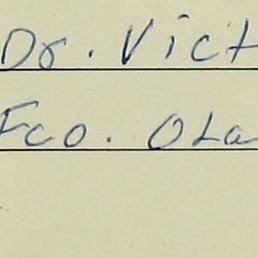 Dr. Vict
Fco. Ola